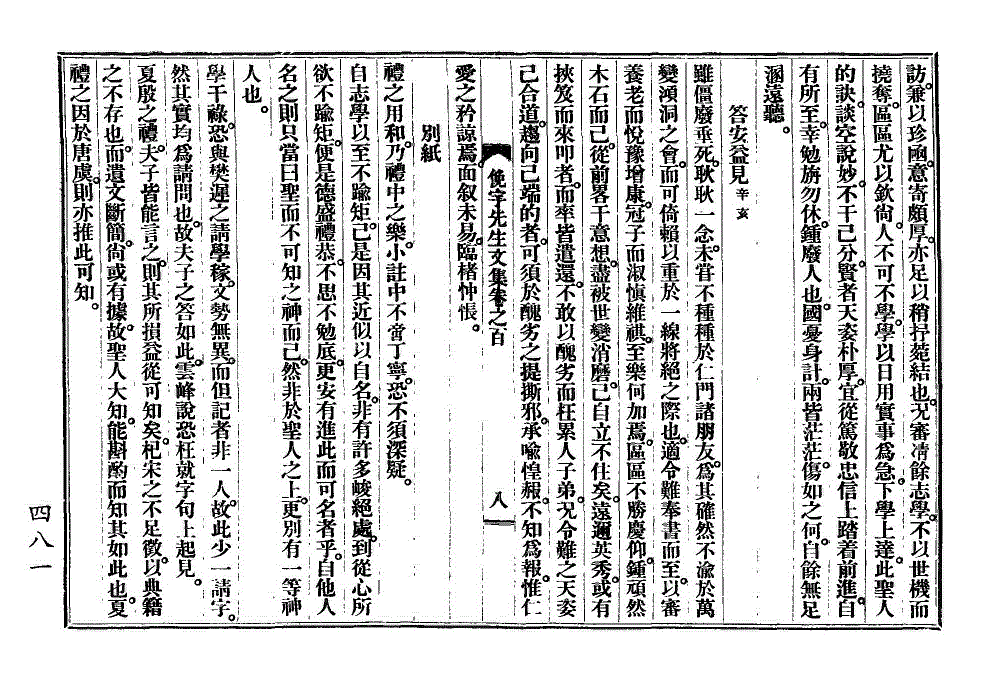 訪。兼以珍函。意寄頗厚。亦足以稍抒菀結也。况審淸餘志學。不以世機而
撓奪。區區尤以欽尙。人不可不學。學以日用實事爲急。下學上達。此聖人
的訣。談空說妙。不干己分。賢者天姿朴厚。宜從篤敬忠信上踏着前進。自
有所至。幸勉旃勿休。鍾廢人也。國憂身計。兩皆茫茫。傷如之何。自餘無足
溷遠聽。
答安益見 辛亥
雖僵廢垂死。耿耿一念。未甞不種種於仁門諸朋友。爲其確然不渝於萬
變澒洞之會。而可倚賴以重於一線將絕之際也。適令難奉書而至。以審
養老而悅豫增康。冠子而淑愼維祺。至樂何加焉。區區不勝慶仰。鍾頑然
木石而已。從前畧干意想。盡被世變消磨。已自立不住矣。遠邇英秀。或有
挾笈而來叩者。而率皆遣還。不敢以醜劣而枉累人子弟。况令難之天姿
已合道。趨向已端的者。可須於醜劣之提撕邪。承喩惶赧。不知爲報。惟仁
俛宇先生文集卷之百 八
愛之矜諒焉。面叙未易。臨楮忡悵。
別紙
禮之用和。乃禮中之樂。小註中不啻丁寧。恐不須深疑。
自志學以至不踰矩。已是因其近似以自名。非有許多峻絕處。到從心所
欲不踰矩。便是德盛禮恭。不思不勉底。更安有進此而可名者乎。自他人
名之則只當曰聖而不可知之神而已。然非於聖人之上。更別有一等神
人也。
學干祿。恐與樊遲之請學稼。文勢無異。而但記者非一人。故此少一請字。
然其實均爲請問也。故夫子之答如此。雲峰說恐枉就字句上起見。
夏殷之禮。夫子皆能言之。則其所損益從可知矣。杞宋之不足徵。以典籍
之不存也。而遺文斷簡。尙或有據。故聖人大知。能斟酌而知其如此也。夏
禮之因於唐虞。則亦推此可知。
四八一